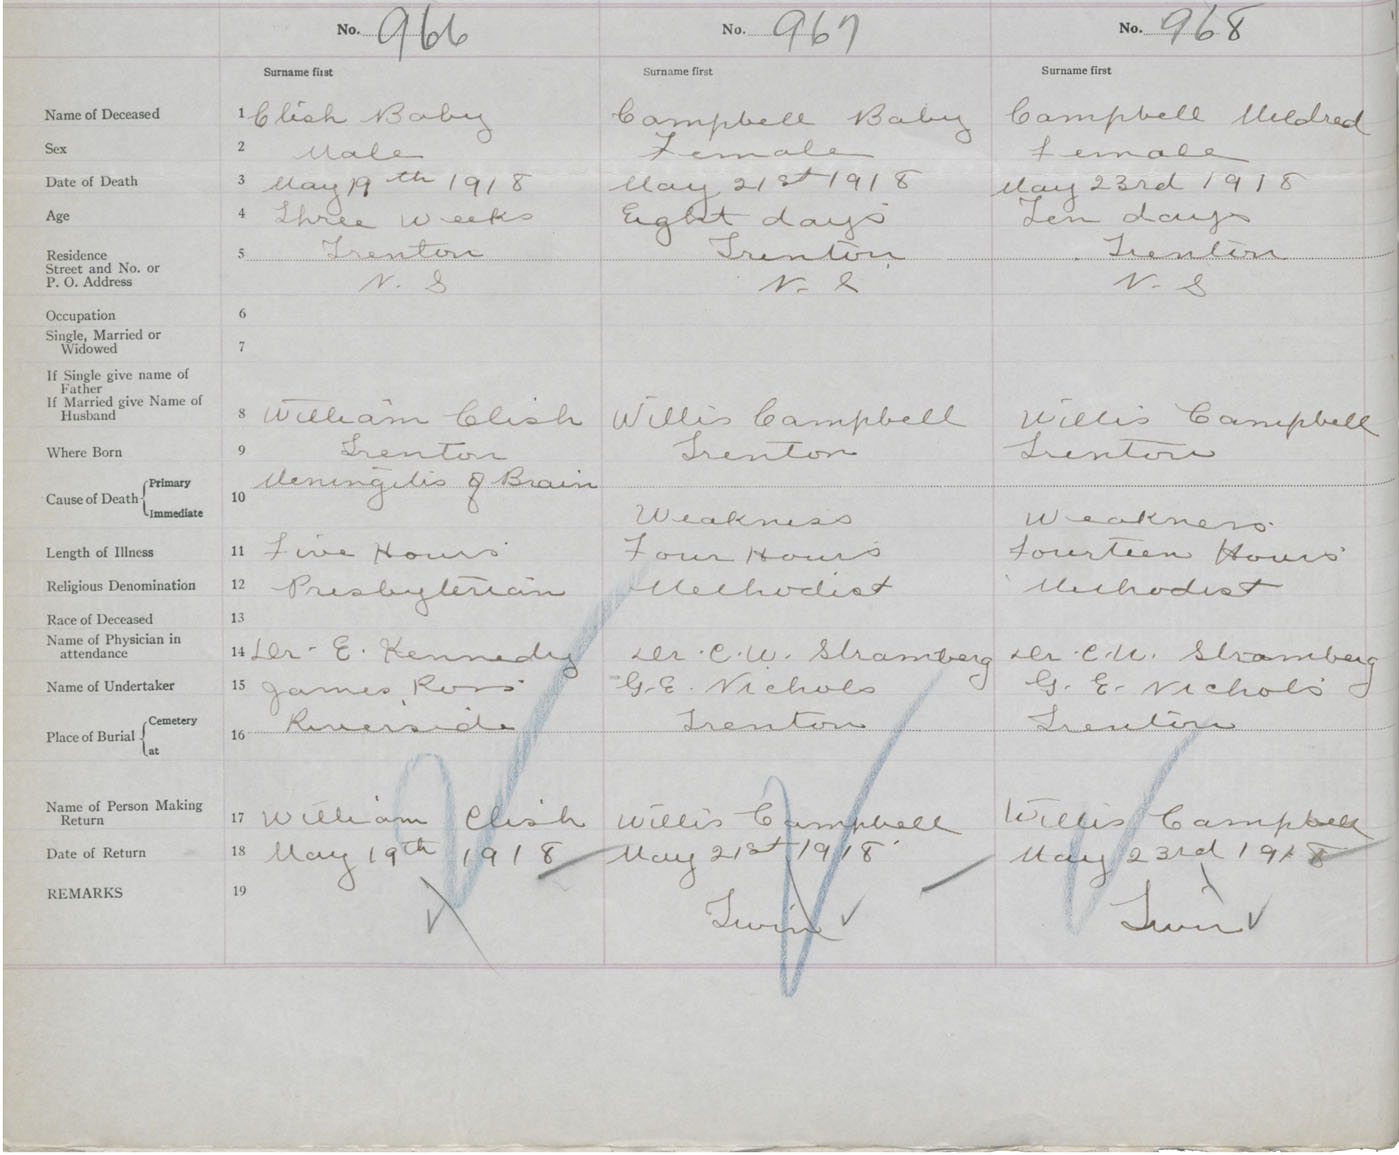 No. 966 No. 967 No. 968
Surname first Surname first Surname first
Name of Deceased 1 Clish Baby Campbell Baby Campbell Mildred
Sex 2 Male Female Female
Date of Death 3 May 19th 1918 May 21st 1918 May 23rd 1918
Age 4 Three Weeks Eight days Ten days
Residence 5 Trenton Trenton Trenton
Street and No. or
P. O. Address N. S N. S N. S
Occupation 6
Single, Married or
Widowed 7
If Single give name of
Father
If Married give Name of
Husband 8 William Clish Willis Campbell Willis Campbell
Where Born 9 Trenton Trenton Trenton
Cause of Death Primary 10 Meningitis of Brain
Immediate Weakness Weakness
Length of Illness 11 Five Hours Four Hours Fourteen Hours
Religious Denomination 12 Presbyterian Methodist Methodist
Race of Deceased 13
Name of Physician in
attendance 14 Dr. E. Kennedy Dr. C. W. Stramberg Dr. C. W. Stramberg
Name of Undertaker 15 James Ross G. E. Nichols G. E. Nichols
Place of Burial Cemetery 16 Riverside Trenton Trenton
at
Name of Person Making
Return 17 William Clish Willis Campbell Willis Campbell
Date of Return 18 May 19th 1918 May 21st 1918 May 23rd 1918
REMARKS 19 Twin Twin